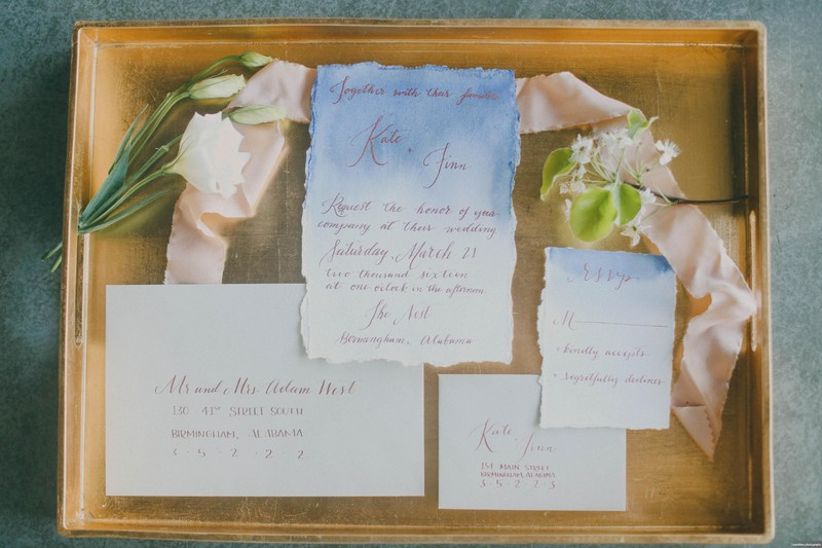 Together with their families
Kate
+ Finn
Request the honor of your
company at their wedding
Saturday, March 21
two thousand sixteen
at one o'clock in the afternoon
The Nest
Birmingham, Alabama
RSVP
M
• kindly accepts
• regretfully declines
Mr and Mrs. Adam West
130 41ST STREET SOUTH
BIRMINGHAM, ALABAMA
3 · 5 · 2 · 2 · 2
Kate
+ Finn
151 MAIN STREET
BIRMINGHAM, ALABAMA
3 · 5 · 2 · 2 · 3